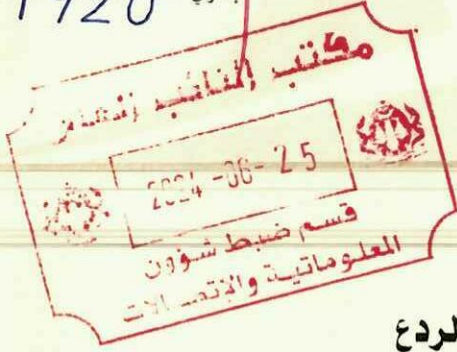 1920
مكتب النائب العام
2024-06-25
قسم ضبط شؤون
المعلوماتية والاتصالات
لردع